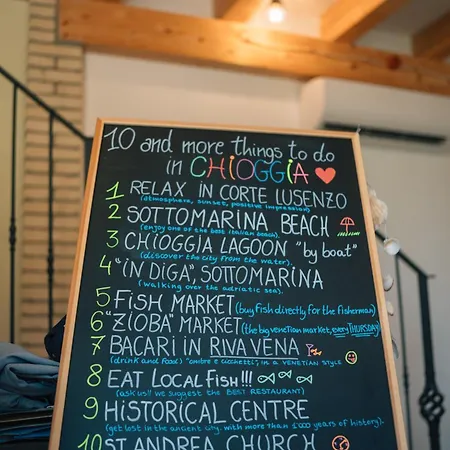 10 and more things to do
in CHIOGGIA
1 RELAX IN CORTE LUSENZO
(atmosphere, sunset, positive impression)
2 SOTTOMARINA BEACH
(enjoy one of the best italian beach).
3 CHIOGGIA LAGOON "by boat"
(discover the city from the water).
4 "IN DIGA", SOTTOMARINA
(walking over the adriatic sea).
5 FISH MARKET (buy fish directly for the fisherman)
6 "ZIOBA" MARKET (the big venetian market, every THURSDAY)
7 BACARI IN RIVA VENA
(drink and food) "ombre e cicchetti", in a VENETIAN STYLE
8 EAT LOCAL FISH!!!
(ask us!! we suggest the BEST RESTAURANT)
9 HISTORICAL CENTRE
(get lost in the ancient city. with more than 1'000 years of history).
10 ST. ANDREA CHURCH